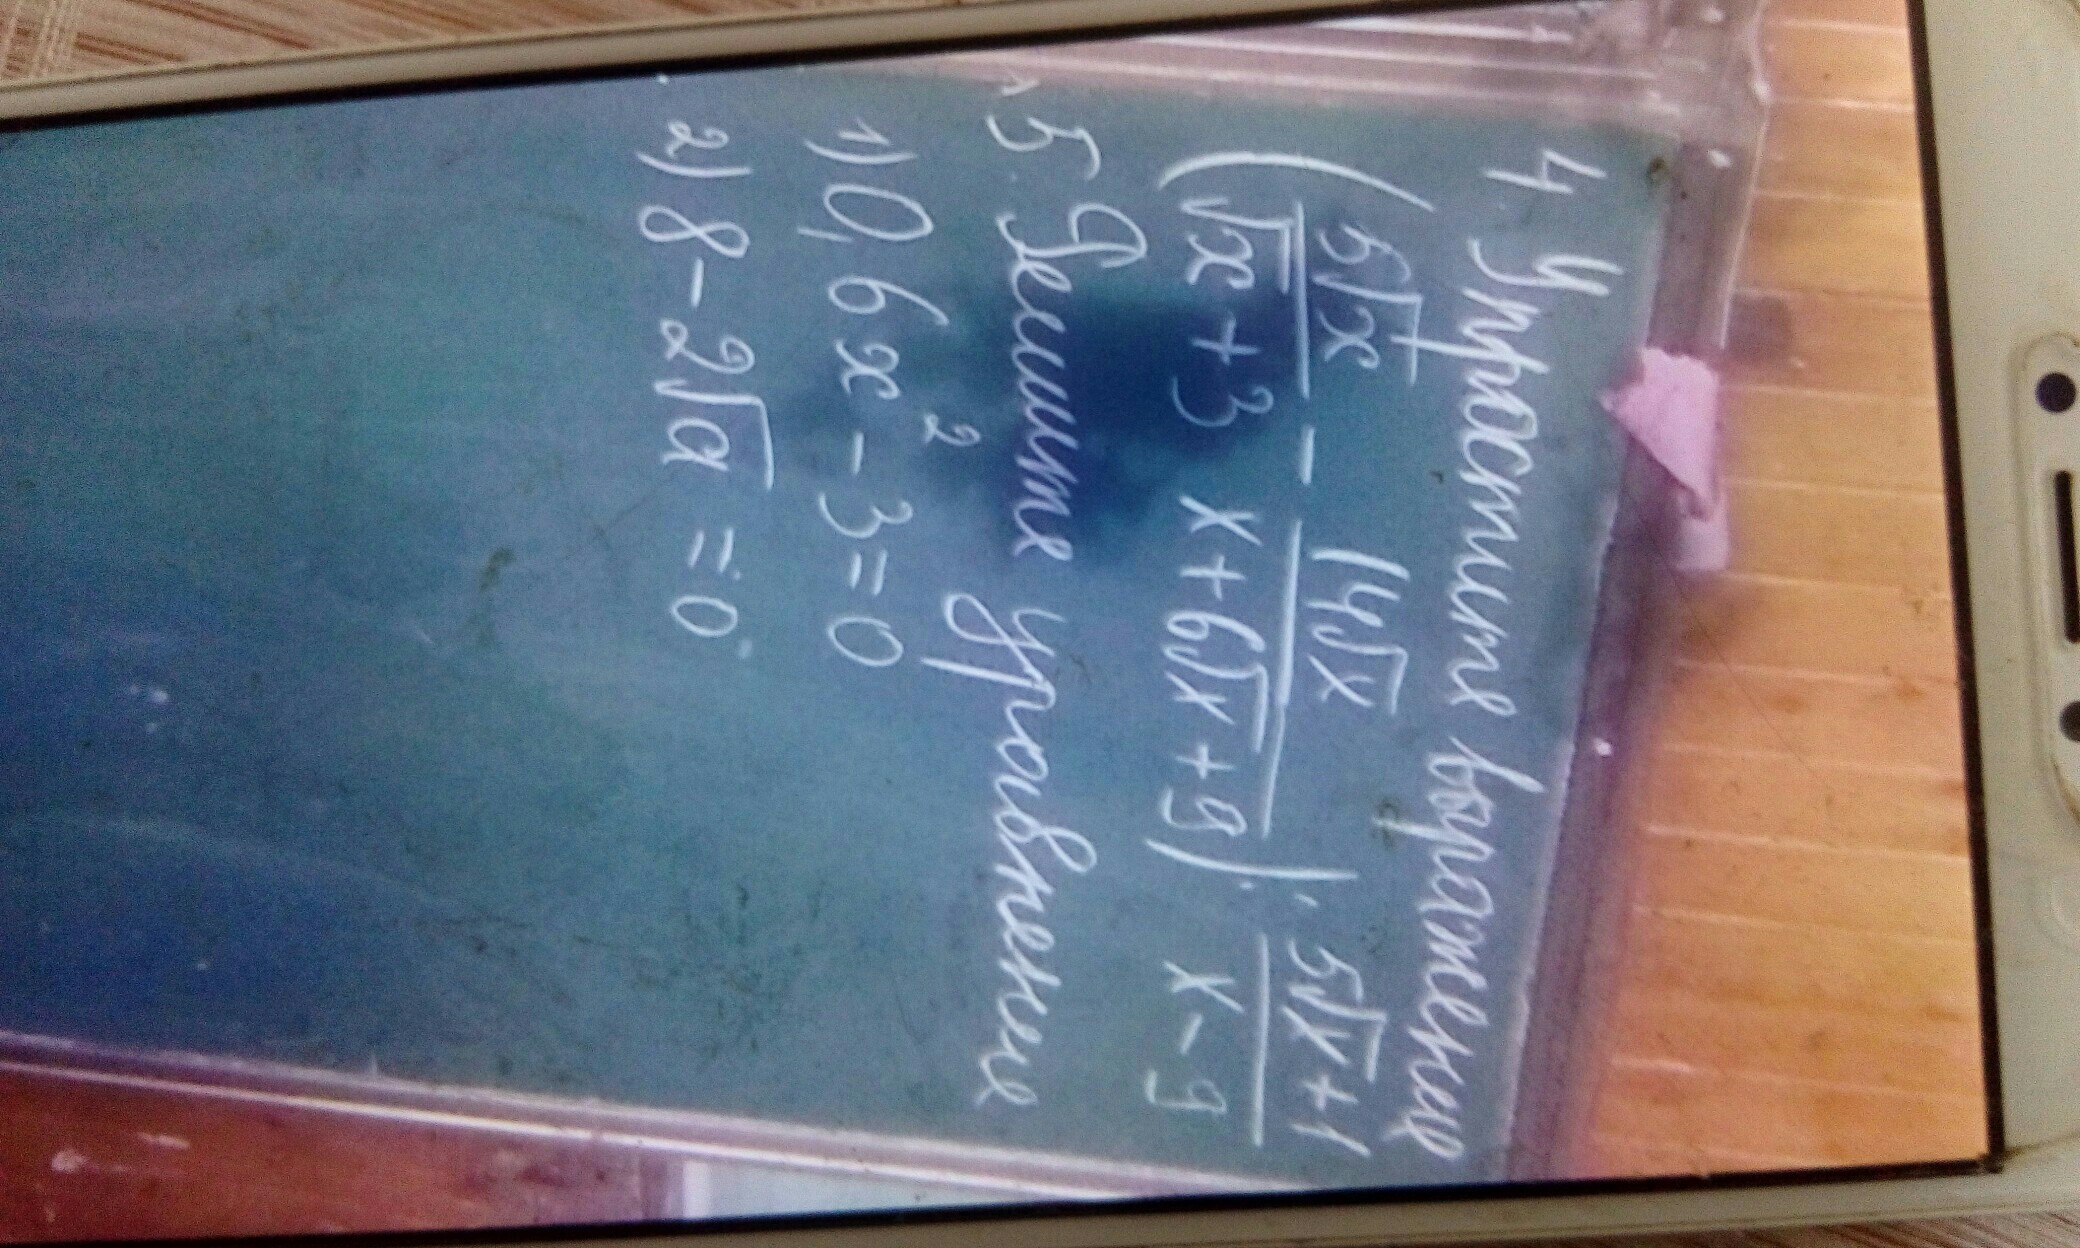 4. Упростите выражение
(5√x / √x + 3 − 14√x / x + 6√x + 9) · 5√x + 1 / x − 9
5. Решите уравнение
1) 0,6x² − 3 = 0
2) 8 − 2√a = 0